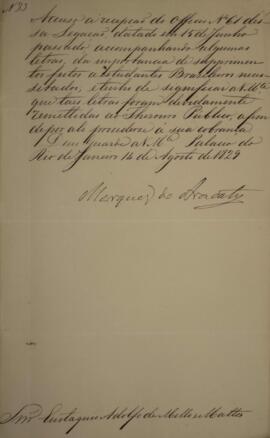 N 33
Accuso a recepção do officio Nº 61 des
sa Legação, datado em 15 de Junho
passado acompanhando algumas
letras, da importancia de suppprimen
tos feitos a Estudantes Brasileiros
e tenho de significar a V.Mce
que taes letras foram devidamente
remettidas ao Thesouro Publico, a fim
de por ali proceder se á sua cobrança
Deus Guarde a V.Mce Palacio do
Rio de Janeiro 14 de Agosto de 1829
Marquez de Aracaty
Snr Eustaquio Adolfo de Mello Mattos